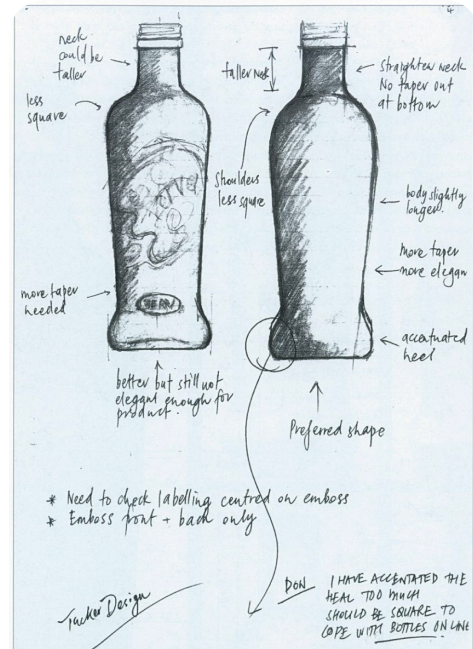 4
neck
could be
taller
less
square
more taper
needed
better but still not
elegant enough for
product.
taller Neck
Shoulders
less square
straighten neck
No taper out
at bottom
body slightly
longer.
more taper
more elegan
accentuated
heel
Preferred shape
* Need to check labelling centred on emboss
* Emboss front + back only
Tucker Design
DON
I HAVE ACCENTATED THE
HEAL TOO MUCH
SHOULD BE SQUARE TO
COPE WITH BOTTLES ON LINE